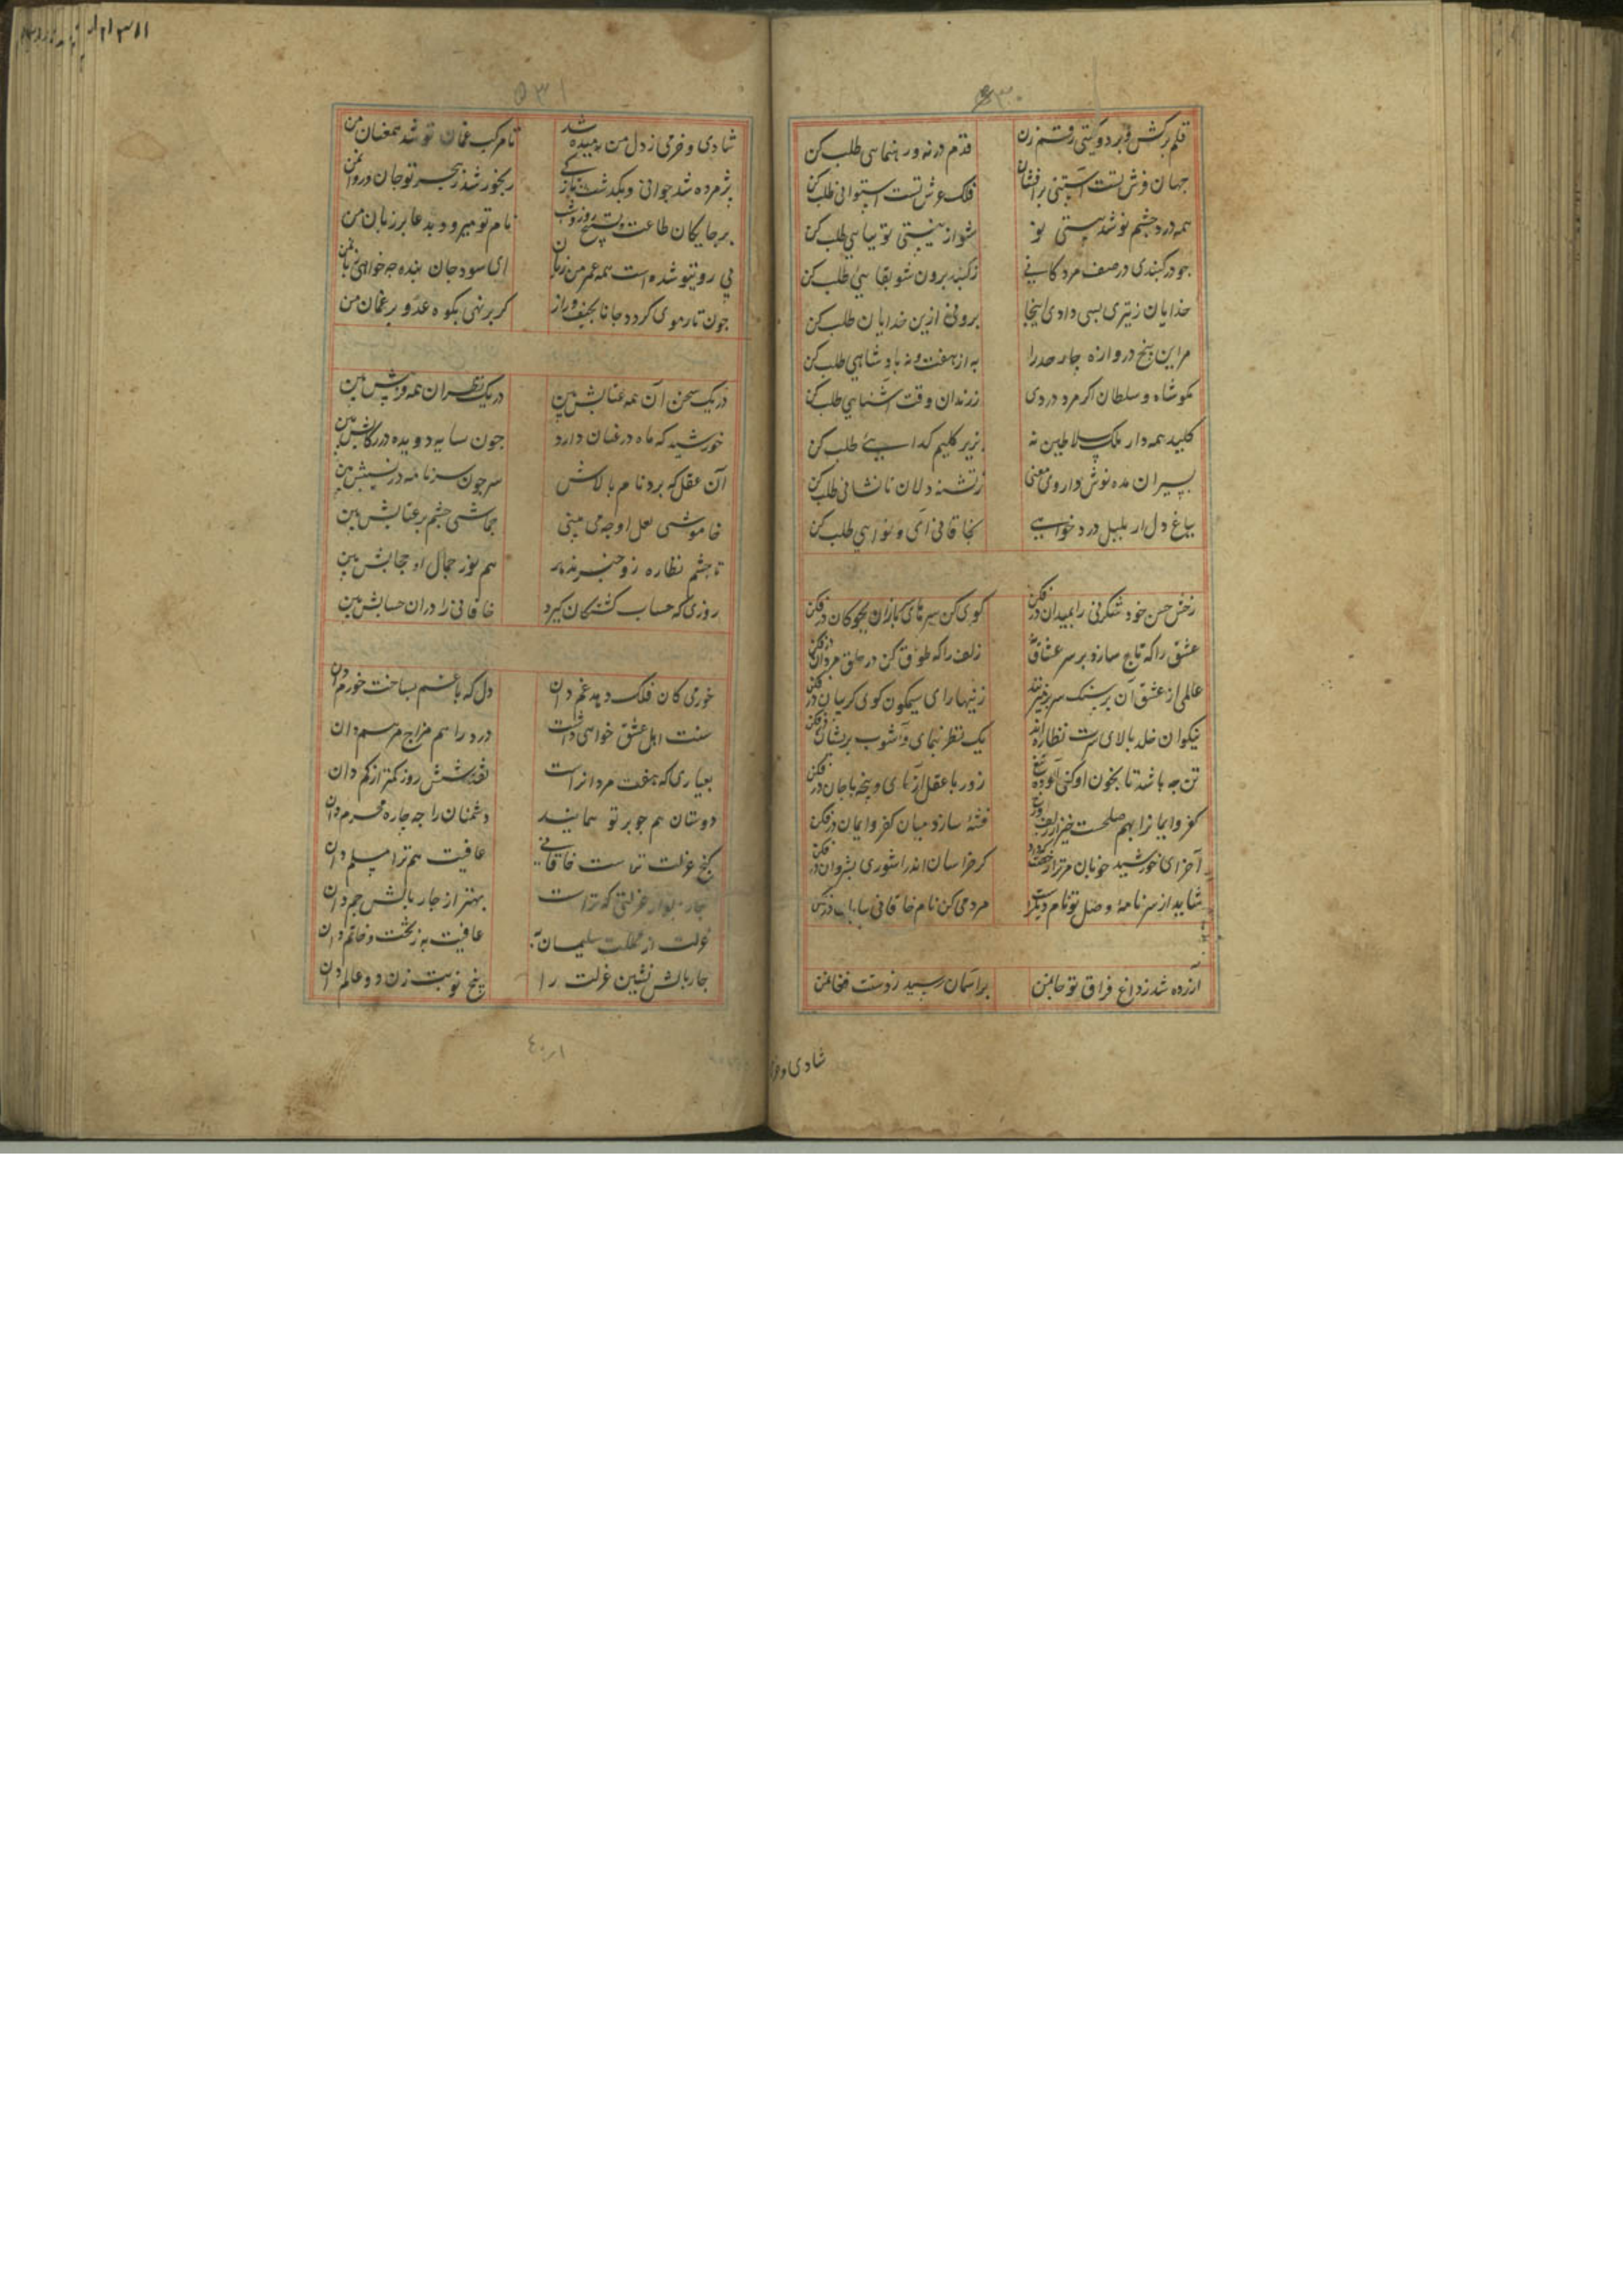 ۵۳۰
قلم برکش و بر دو گیتی رقم زن قدم در نه و رهنمایی طلب کن
جهان فرش تست آستینی برافشان فلک عرش تست استوایی طلب کن
همه درد چشم تو شد هستی تو شو از نیستی توتیایی طلب کن
چو در گنبدی در صف مردگانی ز گنبد برون شو بقایی طلب کن
خدایان رهزن بسی دادی اینجا برون زین خدایان طلب کن
مر این پنج دروازه چار حد را به از هفت و نه پادشاهی طلب کن
مگو شاه و سلطان اگر مرد دردی ز رندان وقت آشنایی طلب کن
کلید همه دار ملک سلاطین به زیر گلیم گدایی طلب کن
بپیران مده نوش داروی معنی ز تشنه دلان ناشتایی طلب کن
بباغ دل ار بلبل درد خواهی بخاقانی آی و نوایی طلب کن
رخش حسن خود شگرفی را بمیدان در فکن گوی کن سرهای بازان بچوگان در فکن
عشق را گه تاج سازد بر سر عشاق زلف را گه طوق کن در حلق مردان در فکن
عالمی از عشق آن بر سنگ سر میزنند زینهار ای سیمگون گوی گریبان در فکن
نیکوان خلد بالای سرت نظاره اند یک نظر بنمای و آشوب بریشان در فکن
تن چه باشد تا بخون او کنی آلوده تیغ زور با عقل آزمای و پنجه با جان در فکن
کفر و ایمان را بهم صلحست خیز از زلف و رخ فتنه سازد میان کفر و ایمان در فکن
آخر ای خورشید خوبان مر ترا رخصت که داد کز خراسان اندر آ شوری بشروان در فکن
شاید از سرنامه وصل تو نام دیگر است مردمی کن نام خاقانی بپایان در فکن
آزرده شد ز داغ فراق تو جان من بر آسمان رسید ز دستت فغان من
شادی و خرمی
۵۳۱
شادی و خرمی ز دل من رمیده شد تا مرکب غمان تو شد همعنان من
پژمرده شد جوانی و بگذشت رنجور شد ز هجر تو جان و روان من
بر جایگان طاعت و تسبیح روز و شب نام تو میرود بدعا بر زبان من
بی روی تو شده است همه عمر من زیان ای سود جان بنده چه خواهی زیان من
چون تار موی گردد جانا بحیف و راز گر بر نهی بکوه عدو بر غمان من
در یک سخن آن همه عتابش بین در یک نظر آن همه فریبش بین
خورشید که ماه در عنان دارد چون سایه دویده در رکابش بین
آن عقل که برد نام بالاش سر چون سر نامه در نشیبش بین
خاموشی لعل او چه می بینی جماشی چشم پر عتابش بین
تا چشم نظاره زو خبر ندهد هم نور جمال او حجابش بین
روزی که حساب کشتگان گیرد خاقانی را در آن حسابش بین
خوری کان فلک دهد غم دان دل که با غم بساخت خورم دان
سنت اهل عشق خواهی داشت درد را هم مزاج مرهم دان
بعیاری که هفت مردانراست لعبت شش روز کمتر از کم دان
دوستان هم چو بر تو همانند دشمنان را چه چاره محرم دان
گنج عزلت تراست خاقانی عافیت هم ترا مسلم دان
چار دیوار عزلتی که تراست بهتر از چار بالش جم دان
عزلت از مملکت سلیمان به عافیت به ز تخت و خاتم دان
چار بالش نشین عزلت را پنج نوبت زن دو عالم دان